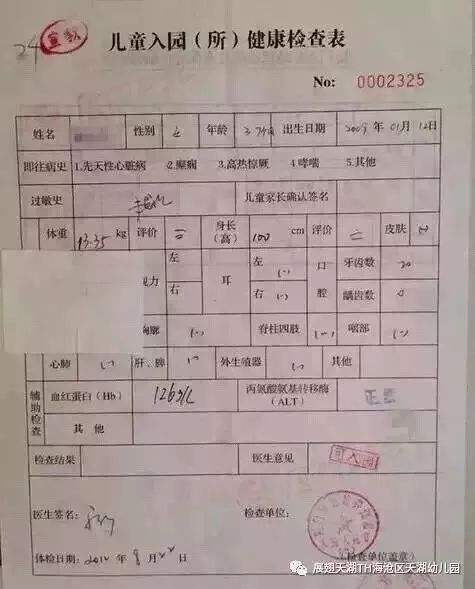 24
儿童入园(所)健康检查表
No: 0002325
姓名 性别 女 年龄 出生日期 2009 年 01 月 12 日
即往病史 1.先天性心脏病 2.癫痫 3.高热惊厥 4.哮喘 5.其他
过敏史 儿童家长确认签名
体重 13.35 kg 评价 身长(高) 100 cm 评价 皮肤 (-)
力 左 耳 左 (-) 口腔 牙齿数 20
右 右 (-) 龋齿数 0
廓 (-) 脊柱四肢 (-) 咽部 (-)
心肺 (-) 肝、脾 (-) 外生殖器 (-) 其他
辅助检查 血红蛋白(Hb) 126g/L 丙氨酸氨基转移酶(ALT) 正常
其 他
检查结果 医生意见 可入园
医生签名: 检查单位:
体检日期: 2012 年 8 月 22 (检查单位盖章)
展翅天湖TH海沧区天湖幼儿园